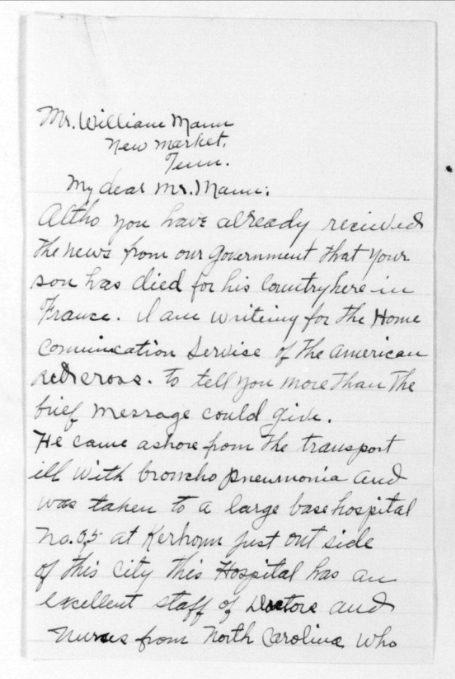 Mr. William Mann
New Market,
Tenn.
My dear Mr. Mann:
Altho you have already recieved
the news from our Government that your
son has died for his Country here in
France. I am writeing for the Home
Communication Service of the American
Redcross. to tell you more than the
brief message could give.
He came ashore from the transport
ill with broncho pneumonia and
was taken to a large base hospital
No. 65 at Kerhoun just out side
of this City this Hospital has an
excellent staff of Doctors and
Nurses from North Carolina who